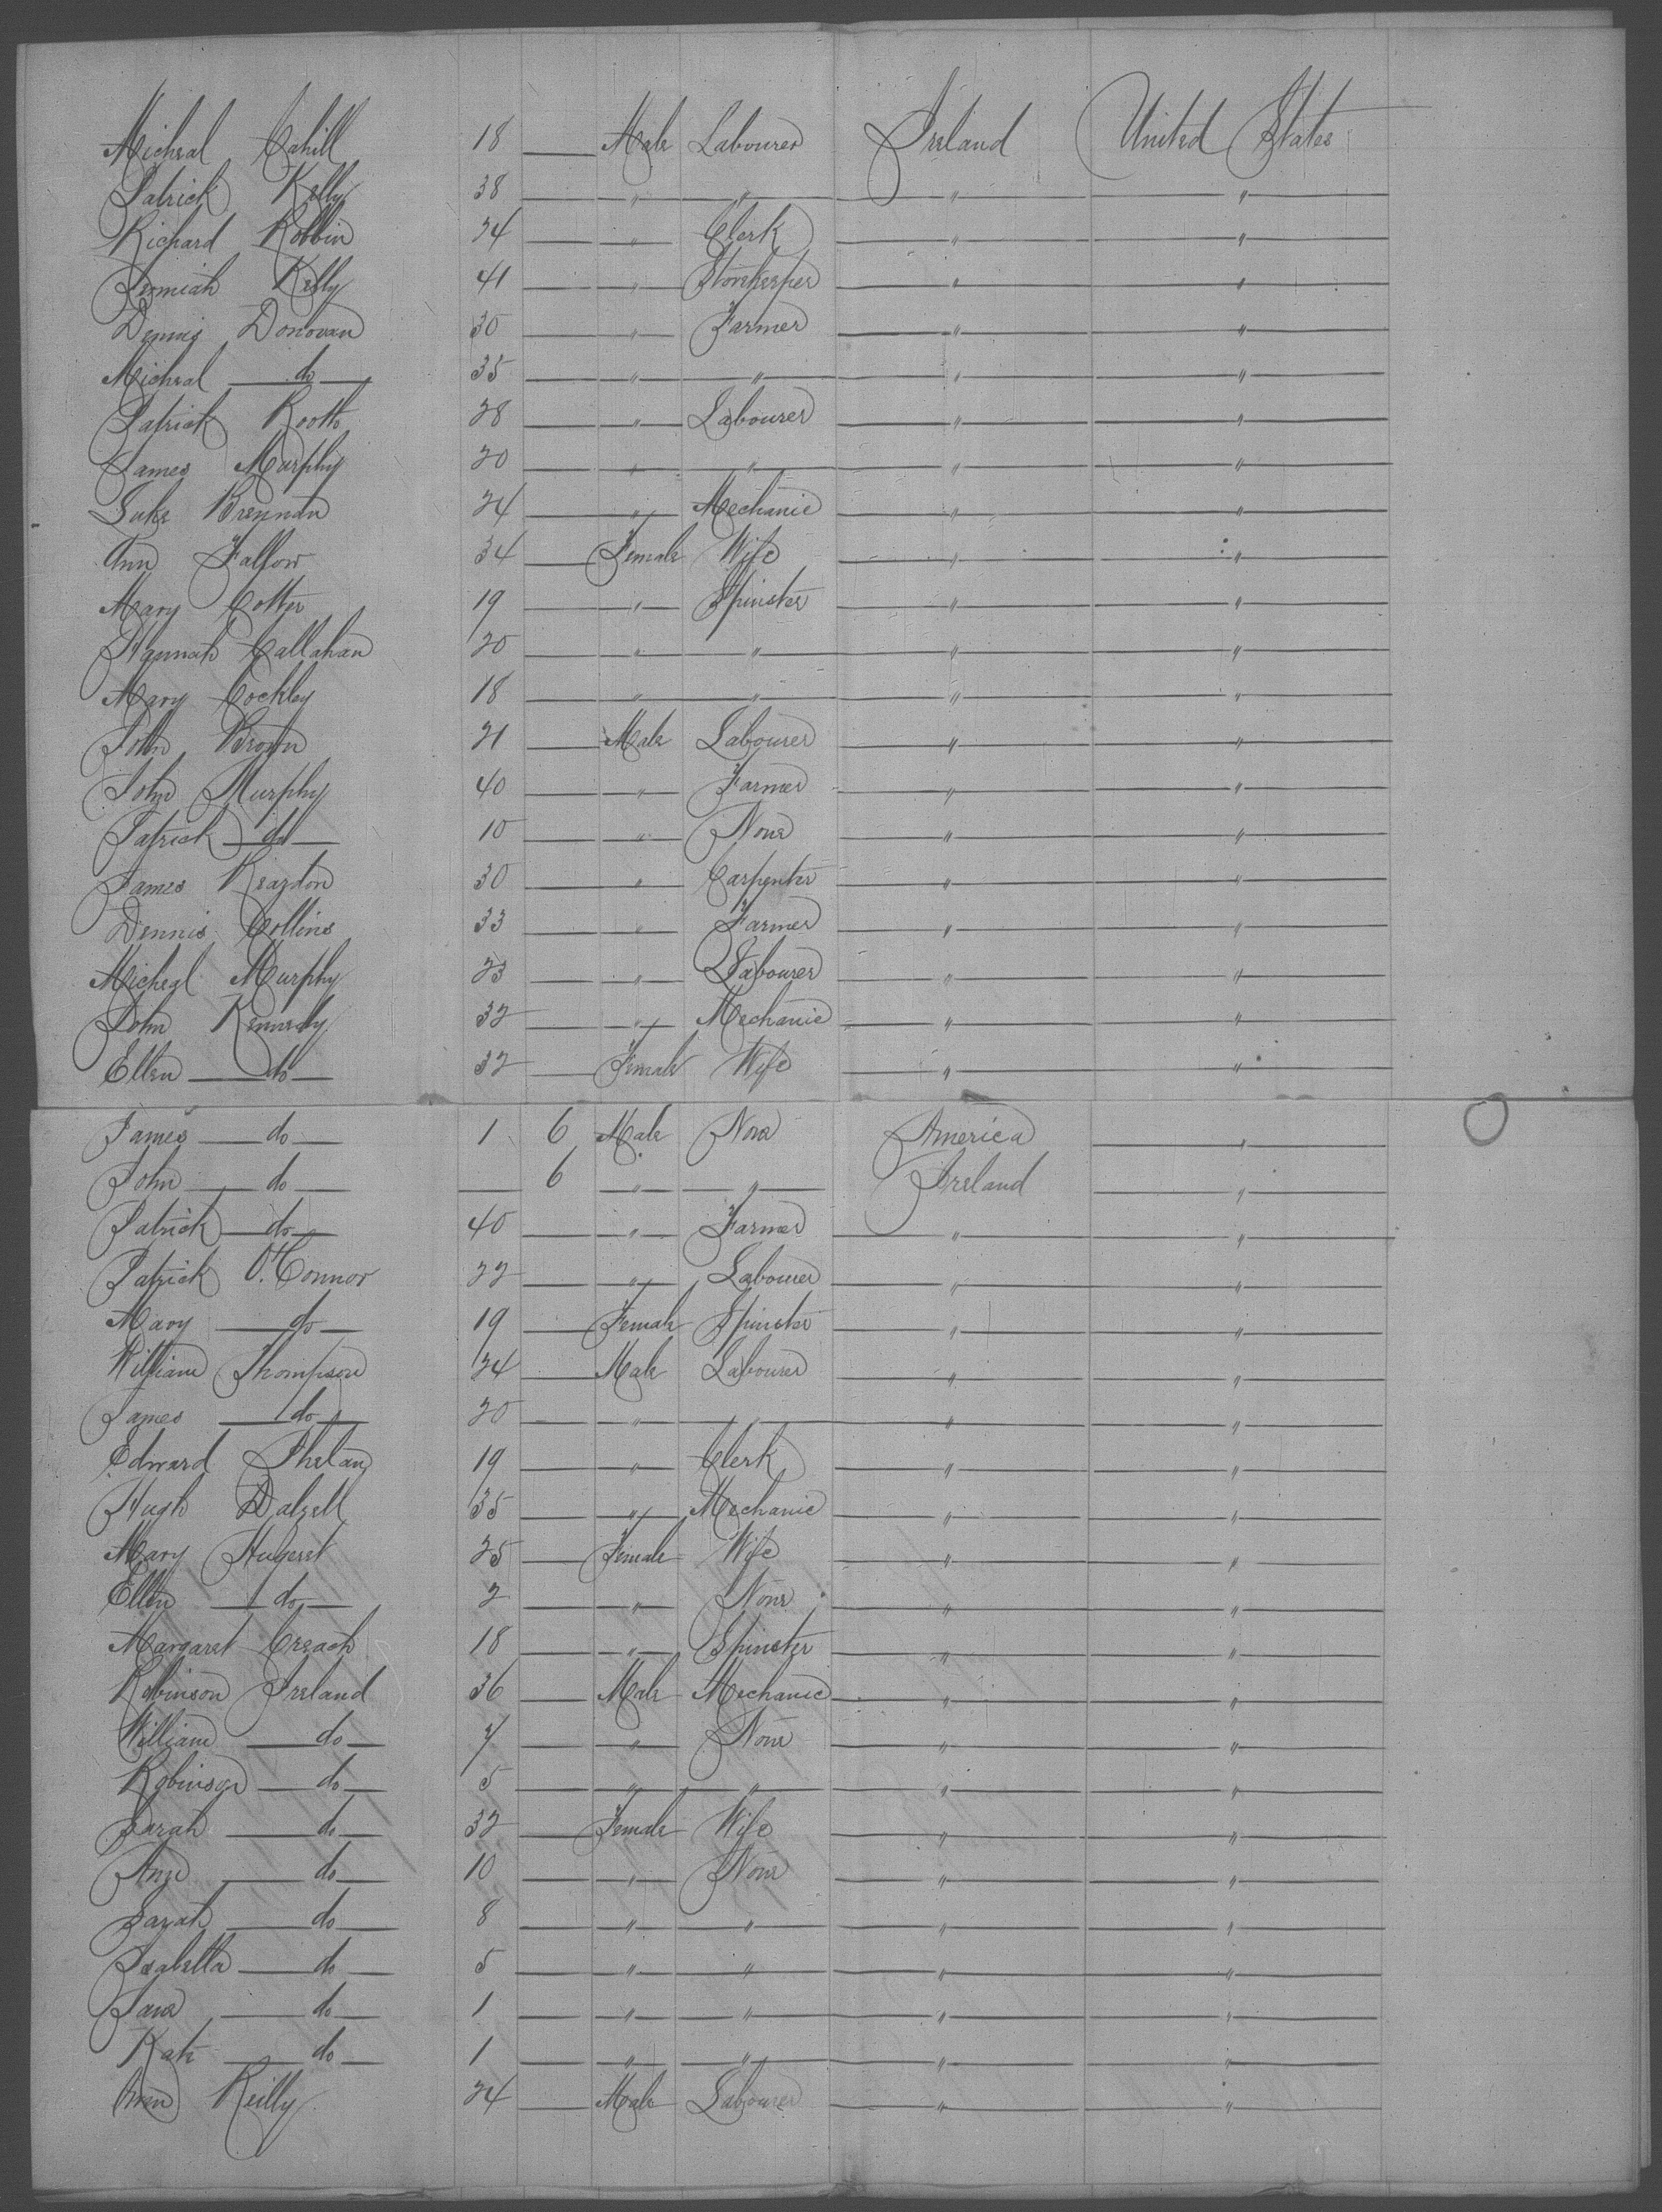 Micheal Cahill 18 — Male Labourer Ireland United States
Patrick Kelly 38 — " " " "
Richard Robbin 24 — " Clerk " "
Jermiah Kelly 41 — " Storekeeper " "
Dennis Donovan 30 — " Farmer " "
Micheal do 35 — " " " "
Patrick Rooth 28 — " Labourer " "
James Murphy 20 — " " " "
Luke Brennan 24 — " Mechanic " "
Ann Fallow 34 — Female Wife " "
Mary Cotter 19 — " Spinster " "
Hannah Callahan 20 — " " " "
Mary Cockley 18 — " " " "
John Brown 21 — Male Labourer " "
John Murphy 40 — " Farmer " "
Patrick do 10 — " None " "
James Reardon 30 — " Carpenter " "
Dennis Collins 33 — " Farmer " "
Micheal Murphy 23 — " Labourer " "
John Kennedy 32 — " Mechanic " "
Ellen do 32 — Female Wife " "
James do 1 6 Male None America "
John do — 6 " " Ireland "
Patrick do 40 — " Farmer " "
Patrick O'Connor 22 — " Labourer " "
Mary do 19 — Female Spinster " "
William Thompson 24 — Male Labourer " "
James do 20 — " " " "
Edward Phelan 19 — " Clerk " "
Hugh Dalzell 35 — " Mechanic " "
Mary 25 — Female Wife " "
Ellen do 2 — " None " "
Margaret Creach 18 — " Spinster " "
Robinson Ireland 36 — Male Mechanic " "
William do 7 — " None " "
Robinson do 5 — " " " "
Sarah do 32 — Female Wife " "
Ann do 10 — " None " "
Sarah do 8 — " " " "
Isabella do 5 — " " " "
Jane do 1 — " " " "
Kate do 1 — " " " "
Owen Reilly 24 — Male Labourer " "